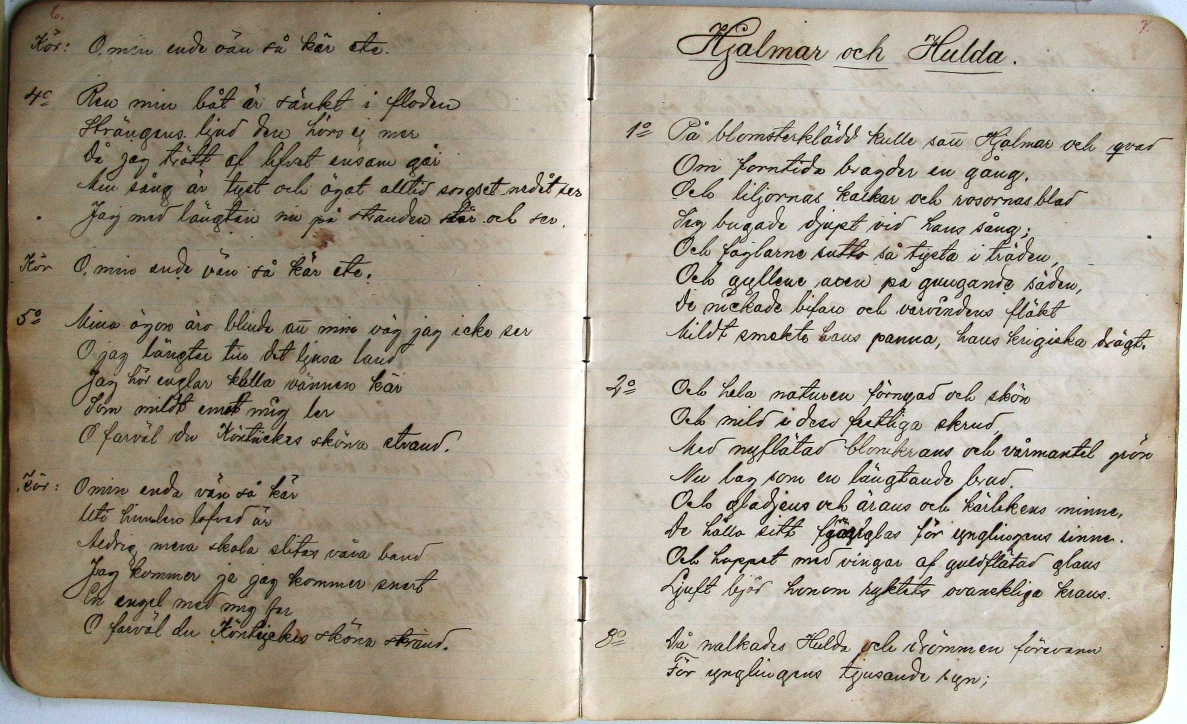 6.
Kör: O, min ende vän så kär etc.
4o Ren min båt är sänkt i floden
Strängens ljud den hörs ej mer
Då jag trött af lifvet ensam går
Min sång är tyst och ögat alltid sorgset nedåt ser
Jag med längtan nu på standen står och ser.
Kör O, min ende vän så kär etc.
5o Mina ögon äro blinda all min väg jag icke ser
O jag längtar till det ljusa land
Jag hör englar kalla vännen kär
Som mildt emot mig ler
O farväl du Köntuckes sköna strand.
Kör: O min enda vän så kär
Uti himlen lofvad är
Aldrig mera skola slitas våra band
Jag kommer ja jag kommer snart
En engel med mig far
O farväl du Köntuckes sköna strand.
7.
Hjalmar och Hulda.
1o På blomsterklädd kulle satt Hjalmar och qvad
Om forntida bragder en gång,
Och liljornas kalkar och rosornas blad
Sig bugade djupt vid hans sång;
Och foglarne sutto så tysta i träden,
Och gyllene axen på gungande säden,
De nickade bifall och vårvindens fläkt
Mildt smekte hans panna, hans krigiska drägt.
2o Och hela naturen förnyad och skön
Och mild i dess festliga skrud,
Med nyflätad blomkrans och vårmantel grön
Nu låg som en längtande brud.
Och glädjens och ärans och kärlekens minne,
De hålla sitt färgglas för ynglingens sinne.
Och hoppet med vingar af guldflätad glans
Ljuft bjöd honom ryktets ovanskliga krans.
3o Då nalkades Hulda och drömmen försvann
För ynglingens tjusande syn;